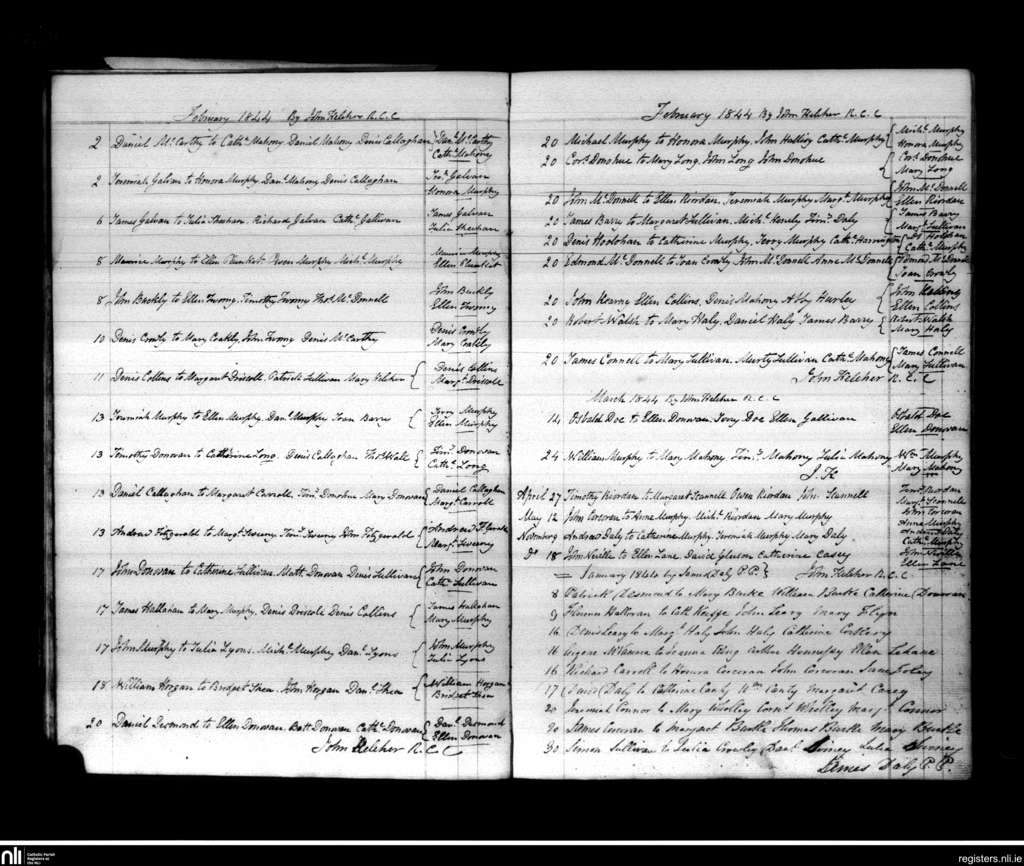 February 1844 By John Kelcher R.C.C
2 Daniel McCarthy to Cathe Mahony Daniel Mahony Denis Callaghan
Danl McCarthy
Cathe Mahony
2 Jeremiah Galvan to Honora Murphy Danl Mahony Denis Callaghan
Galvan
Honora Murphy
6 James Galvan to Julia Sheehan. Richard Galvan Cathe Gallivan
James Galvan
Julia Sheehan
8 Maurice Murphy to Ellen Plunket Murphy Michl Murphy
Maurice Murphy
Ellen Plunket
8 John Buckly to Ellen Twomy. Timothy Twomy Thos McDonnell
John Buckly
Ellen Twomy
10 Denis Crowly to Mary Coakly, John Twomy Denis McCarthy
Denis Crowly
Mary Coakly
11 Denis Collins to Margaret Driscoll. Patrick Sullivan Mary Kelcher
Denis Collins
Margt Driscoll
13 Jeremiah Murphy to Ellen Murphy, Danl Murphy Joan Barry
Jerry Murphy
Ellen Murphy
13 Timothy Donovan to Catherine Long. Denis Callaghan Thos
Timy Donovan
Cathe Long
13 Daniel Callaghan to Margaret Carroll, Timy Donohue Mary Donovan
Daniel Callaghan
Margt Carroll
13 Andrew Fitzgerald to Margt Sweeny, Timy Sweeny John Fitzgerald
Andrew
Margt Sweeny
17 John Donovan to Catherine Sullivan Matt. Donovan Denis Sullivan
John Donovan
Cathe Sullivan
17 James Hallahan to Mary Murphy, Denis Driscoll Denis Collins
James Hallahan
Mary Murphy
17 John Murphy to Julia Lyons. Michl Murphy Danl Lyons
John Murphy
Julia Lyons
18 William Horgan to Bridget Shea. John Horgan Danl Shea
William Horgan
Bridget Shea
20 Daniel Desmond to Ellen Donovan Batt Donovan Cathe Donovan
Danl Desmond
Ellen Donovan
John Kelcher R.C.C
February 1844 By John Kelcher R.C.C
20 Michael Murphy to Honora Murphy, John Cathe Murphy
Michl Murphy
Honora Murphy
20 Cors Donohue to Mary Long, John Long John Donohue
Cors Donohue
Mary Long
20 John McDonnell to Ellen Riordan, Jeremiah Murphy Margt Murphy
John McDonnell
Ellen Riordan
20 James Barry to Margaret Sullivan Michl Timy Daly
James Barry
Margt Sullivan
20 Denis Hoolohan to Catherine Murphy, Jerry Murphy Cathe Harrington
Ds Holohan
Cathe Murphy
20 Edmond McDonnell to Joan Crowly John McDonnell Anne McDonnell
Edmond McDonnell
Joan Crowly
20 John Kearne Ellen Collins, Denis Mahony Abby Hurley
John
Ellen Collins
20 Robert Walsh to Mary Haly, Daniel Haly James Barry
Robert Walsh
Mary Haly
20 James Connell to Mary Sullivan. Murty Sullivan Cathe Mahony
James Connell
Mary Sullivan
John Kelcher R.C.C
March 1844 By John Kelcher R.C.C
14 Osbald Doe to Ellen Donovan, Jerry Doe Ellen Gallivan
Osbald Doe
Ellen Donovan
24 William Murphy to Mary Mahony Timy Mahony Julia Mahony
Wm Murphy
Mary Mahony
J.K
April 27 Timothy Riordan to Margaret Scannell Owen Riordan Jno. Scannell
Timy Riordan
Margt Scannell
May 12 John Corcoran to Anna Murphy. Michl Riordan Mary Murphy
John Corcoran
Anna Murphy
Novemberg Andrew Daly to Catherine Murphy Jeremiah Murphy Mary Daly
Andrew Daly
Cathe Murphy
Do 18 John Neville to Ellen Lane, David Gleeson Catherine Casey
John Neville
Ellen Lane
= January 1844 by James Daly P.P. } John Kelcher R.C.C
8 Patrick Desmond to Mary Burke William Burke Catherine Donovan
9 Florence Halloran to Cath Keeffe John Leary Mary Flynn
16 Denis Leary to Margt Haly John Haly Catherine Corkery
16 Eugene to Joanna King Arthur Hennessy Ellen Lehane
16 Richard Carroll to Honora Corcoran John Corcoran Jane Foley
17 David Daly to Catherine Canty Wm Canty Margaret Casey
20 Jeremiah Connor to Mary Corns Mary Connor
30 James Corcoran to Margaret Burke Thomas Burke Mary Burke
30 Simon Sullivan to Julia Crowly Danl Julia
James Daly P.P.
nli
Catholic Parish
Registers at
the NLI
registers.nli.ie